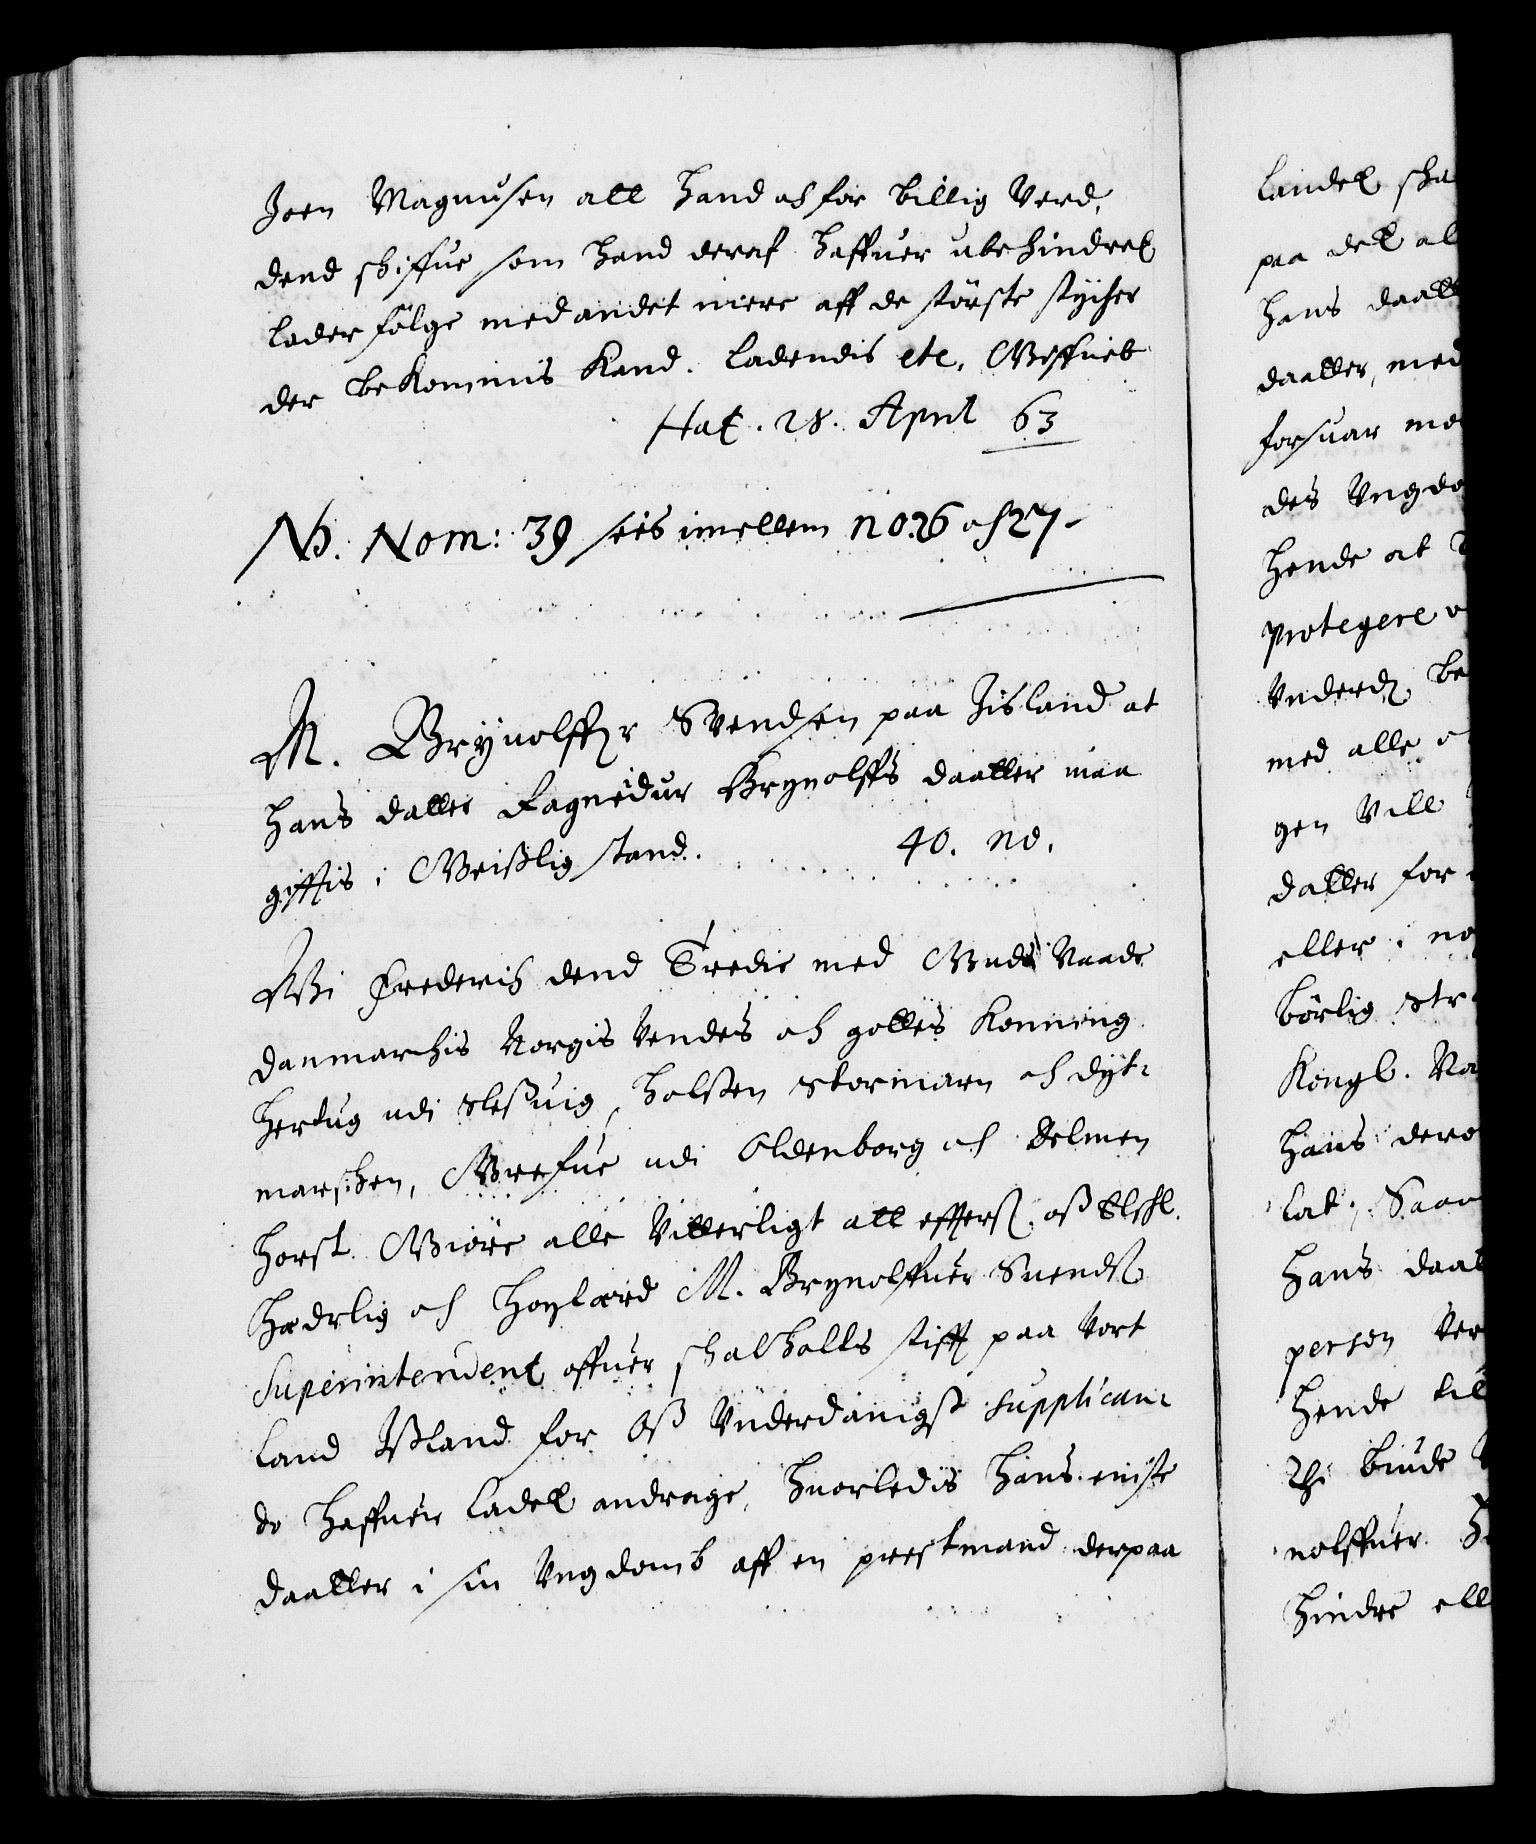 Joen Magnusen att hand os for billig Verd,
dend skiffue som hand deraf haffuer ubehindret
lader følge med andet mere aff de største stycher
der bekommis kand. Ladendis etc. Giffuet
Haf. 28. April 63
NB. Nom: 39 sees imellem no. 26 oc 27.
M. Brynolffr Svendsen paa Jisland at
hans datter Ragnedur Brynolffs daatter maa
giffis i Greiflig stand. 40. no.
Wi Frederich dend Tredie med Guds Naade
Danmarchis Norgis Vendes och Gottes Konning
Hertug udi Slesuig, Holsten Stormarn och Dyt-
marschen, Grefue udi Oldenborg och Delmen
horst. Giøre alle Vitterligt att efftersom oss Elschl.
Hæderlig och Høylærd M. Brynolffuer Suends.
Superintendent offuer Schalholts stifft paa Vort
Land Issland for Oss Underdanigst supplican-
do haffuer ladet andrage, huorledis hans eniste
daatter i sin Ungdomb aff en prestmand derpaa
Landet scha
paa det al
hans daatt
daatter, med
forsuar me
des Ungdo
hende at
protegere o
Underd. be
med alle
gen Vill
datter for
eller i no
børlig Str
Kongl. Na
hans dero
lat; Saa
hans daat
person Ver
hende til
Thi biude
nolffuer
hindre ell